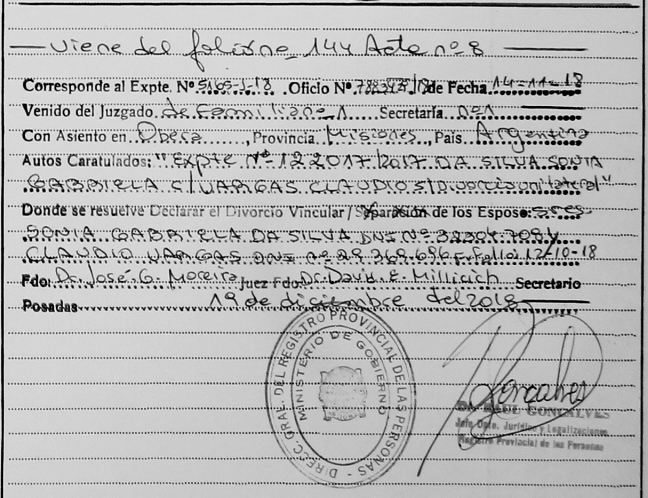 Viene del folio no 144 Acta nº 8
Corresponde al Expte. Nº 5165-J-18 .Oficio Nº /18 de Fecha 14-11-18
Venido del Juzgado de Familia no 1 Secretaría Nº1
Con Asiento en Obera , Provincia Misiones, País Argentina
Autos Caratulados: "Expte Nº 122017/2017 DA SILVA SONIA
GABRIELA C/ VARGAS CLAUDIO S/Divorcio unilateral"
Donde se resuelve Declarar el Divorcio Vincular/Separación de los Esposo: sres.
SONIA GABRIELA DA SILVA DNI Nº 32304.709 y
CLAUDIO VARGAS DNI nº 29.369.696 F. Fallo: 12/10-18
Fdo: Dr. José G. Moreira Juez Fdo: Dr. David E. Millicich Secretario
Posadas 19 de diciembre del 2018
DIREC. GRAL. DEL REGISTRO PROVINCIAL DE LAS PERSONAS -
MINISTERIO DE GOBIERNO
Goncalves
RAUL GONCALVES
Jefe Dpto. Jurídico y Legalizaciones
Registro Provincial de las Personas